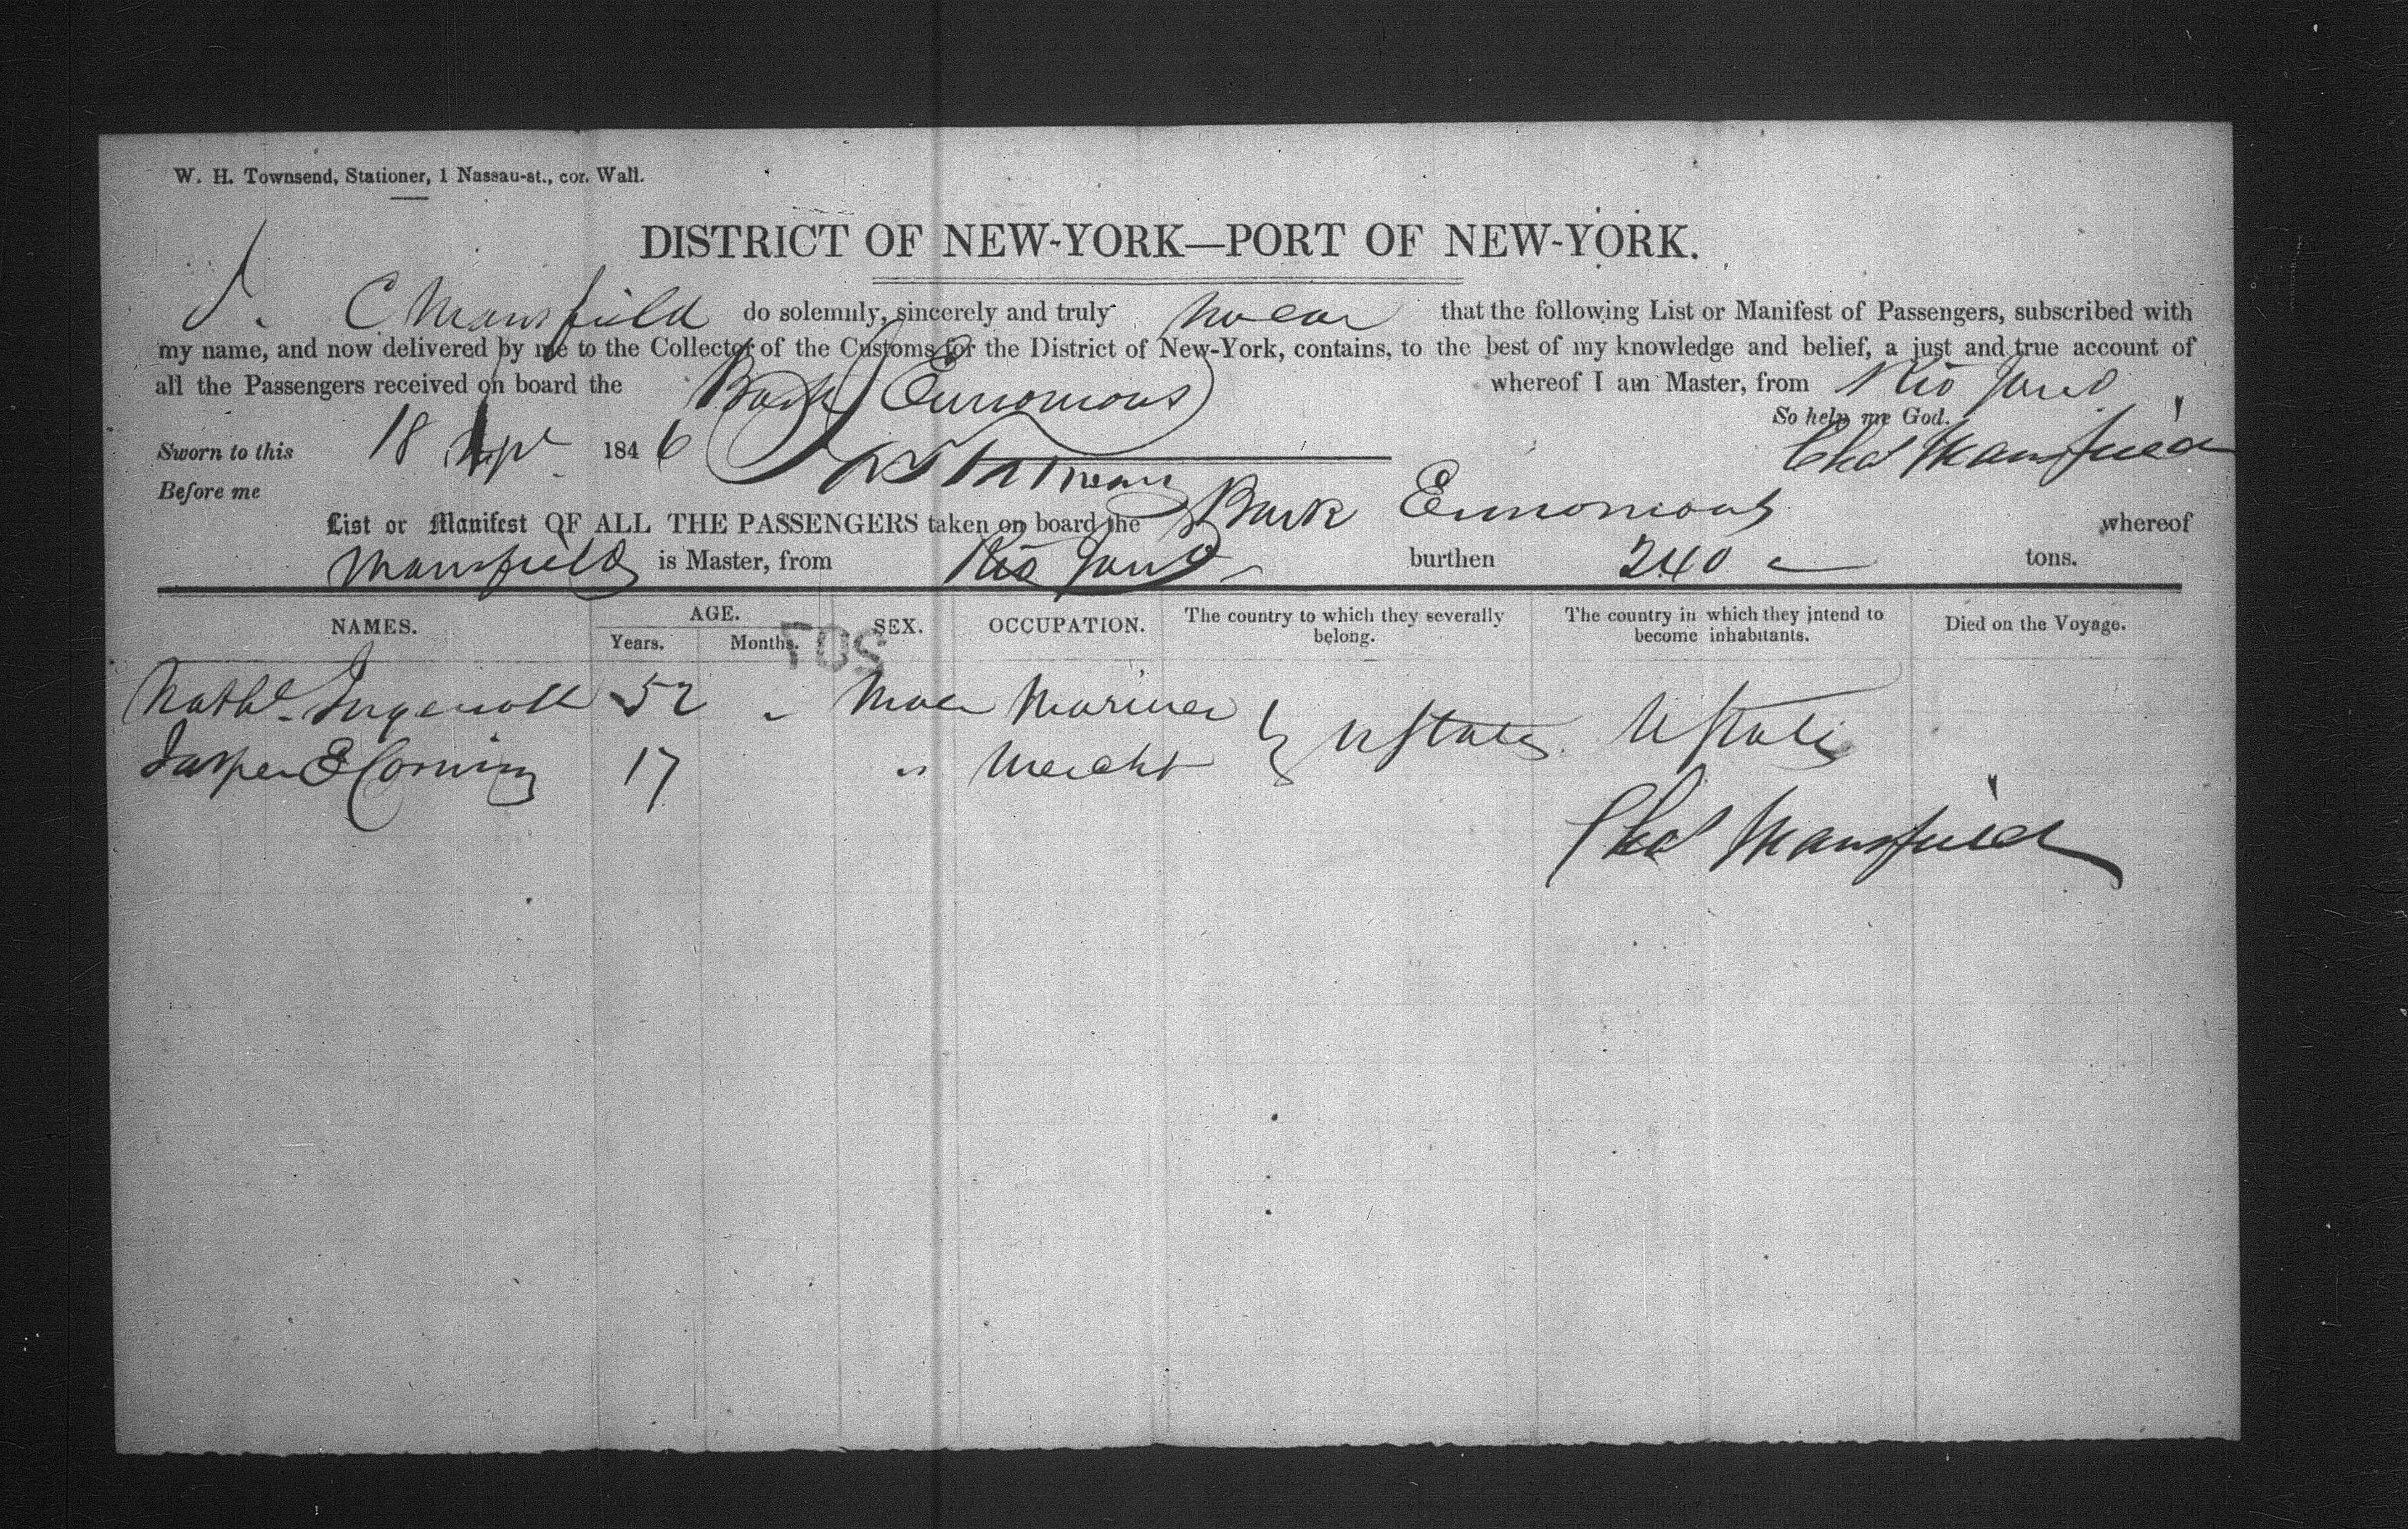 W. H. Townsend, Stationer, 1 Nassau-st., cor. Wall.
DISTRICT OF NEW-YORK—PORT OF NEW-YORK.
I. C Mansfield do solemnly, sincerely and truly swear that the following List or Manifest of Passengers, subscribed with
my name, and now delivered by me to the Collector of the Customs for the District of New-York, contains, to the best of my knowledge and belief, a just and true account of
all the Passengers received on board the Bark Eunomous whereof I am Master, from Rio Jano
So help me God.
Sworn to this 18 Apl 1846 Chas Mansfield
Before me
List or Manifest OF ALL THE PASSENGERS taken on board the Bark Eunomous whereof
Mansfield is Master, from Rio Jano burthen 240 tons.
NAMES. AGE. SEX. OCCUPATION. The country to which they severally belong. The country in which they intend to become inhabitants. Died on the Voyage.
Years. Months.
207
Nathl. Ingersoll 52 " Male Mariner } U States U States
Jasper E Corning 17 " Mercht
Chas Mansfield